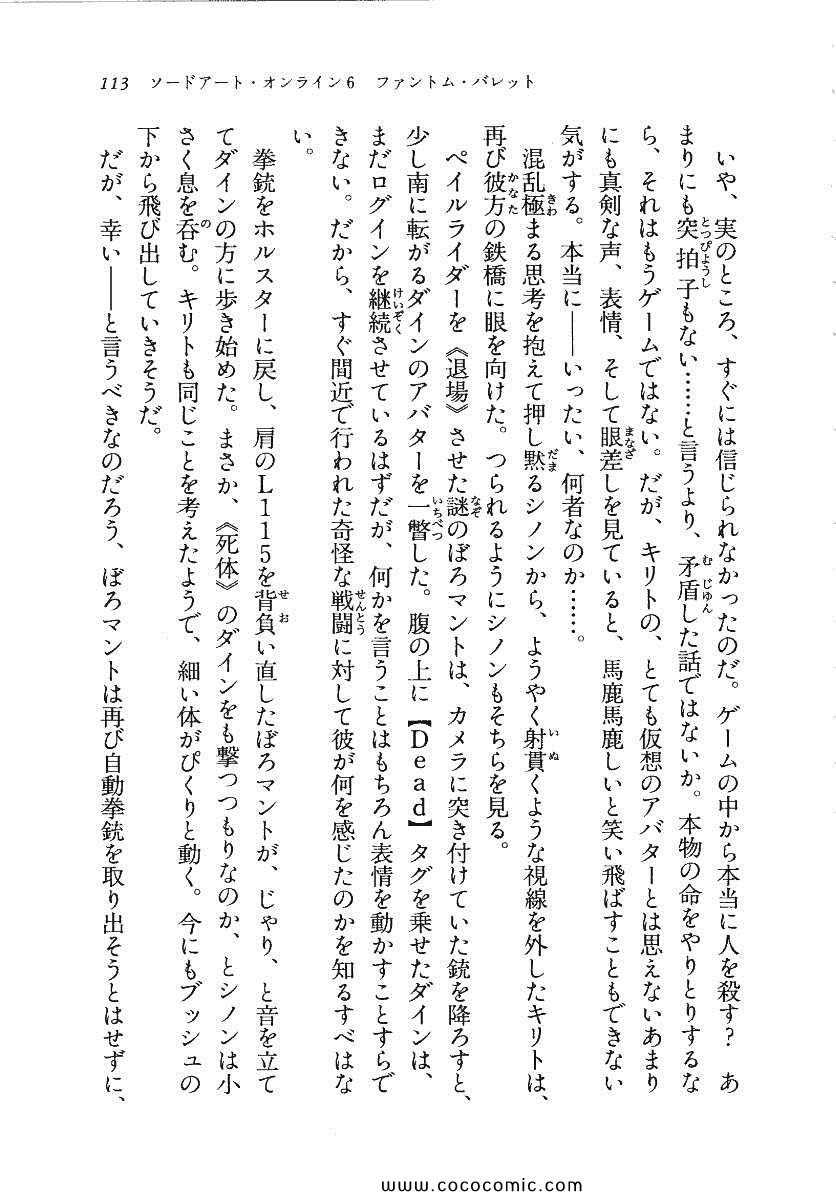 113 ソードアート・オンライン6 ファントム・バレット
いや、実のところ、すぐには信じられなかったのだ。ゲームの中から本当に人を殺す? あ
まりにも突拍子もない……と言うより、矛盾した話ではないか。本物の命をやりとりするな
ら、それはもうゲームではない。だが、キリトの、とても仮想のアバターとは思えないあまり
にも真剣な声、表情、そして眼差しを見ていると、馬鹿馬鹿しいと笑い飛ばすこともできない
気がする。本当に——いったい、何者なのか……。
混乱極まる思考を抱えて押し黙るシノンから、ようやく射貫くような視線を外したキリトは、
再び彼方の鉄橋に眼を向けた。つられるようにシノンもそちらを見る。
ペイルライダーを《退場》させた謎のぼろマントは、カメラに突き付けていた銃を降ろすと、
少し南に転がるダインのアバターを一瞥した。腹の上に【Dead】タグを乗せたダインは、
まだログインを継続させているはずだが、何かを言うことはもちろん表情を動かすことすらで
きない。だから、すぐ間近で行われた奇怪な戦闘に対して彼が何を感じたのかを知るすべはな
い。
拳銃をホルスターに戻し、肩のL115を背負い直したぼろマントが、じゃり、と音を立て
てダインの方に歩き始めた。まさか、《死体》のダインをも撃つつもりなのか、とシノンは小
さく息を呑む。キリトも同じことを考えたようで、細い体がぴくりと動く。今にもブッシュの
下から飛び出していきそうだ。
だが、幸い——と言うべきなのだろう、ぼろマントは再び自動拳銃を取り出そうとはせずに、
www.cococomic.com